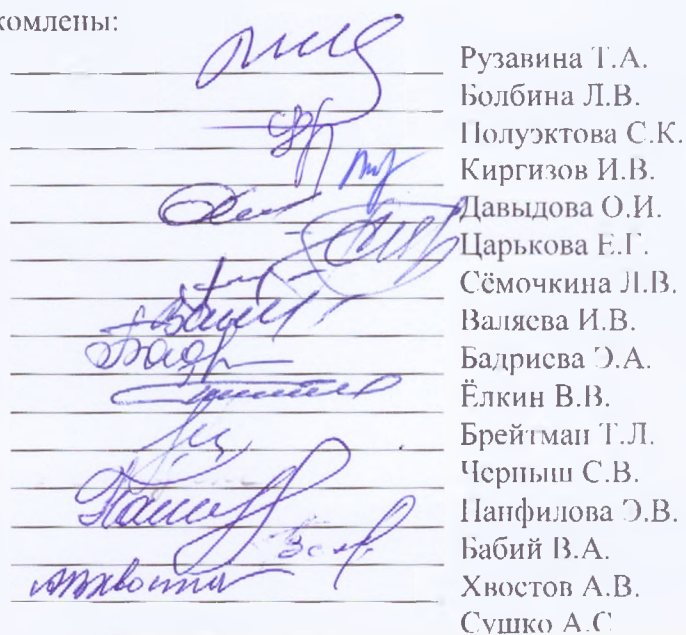 комлены:
Рузавина Т.А.
Болбина Л.В.
Полуэктова С.К.
Киргизов И.В.
Давыдова О.И.
Царькова Е.Г.
Сёмочкина Л.В.
Валяева И.В.
Бадриева Э.А.
Ёлкин В.В.
Брейтман Т.Л.
Черныш С.В.
Панфилова Э.В.
Бабий В.А.
Хвостов А.В.
Сушко А.С